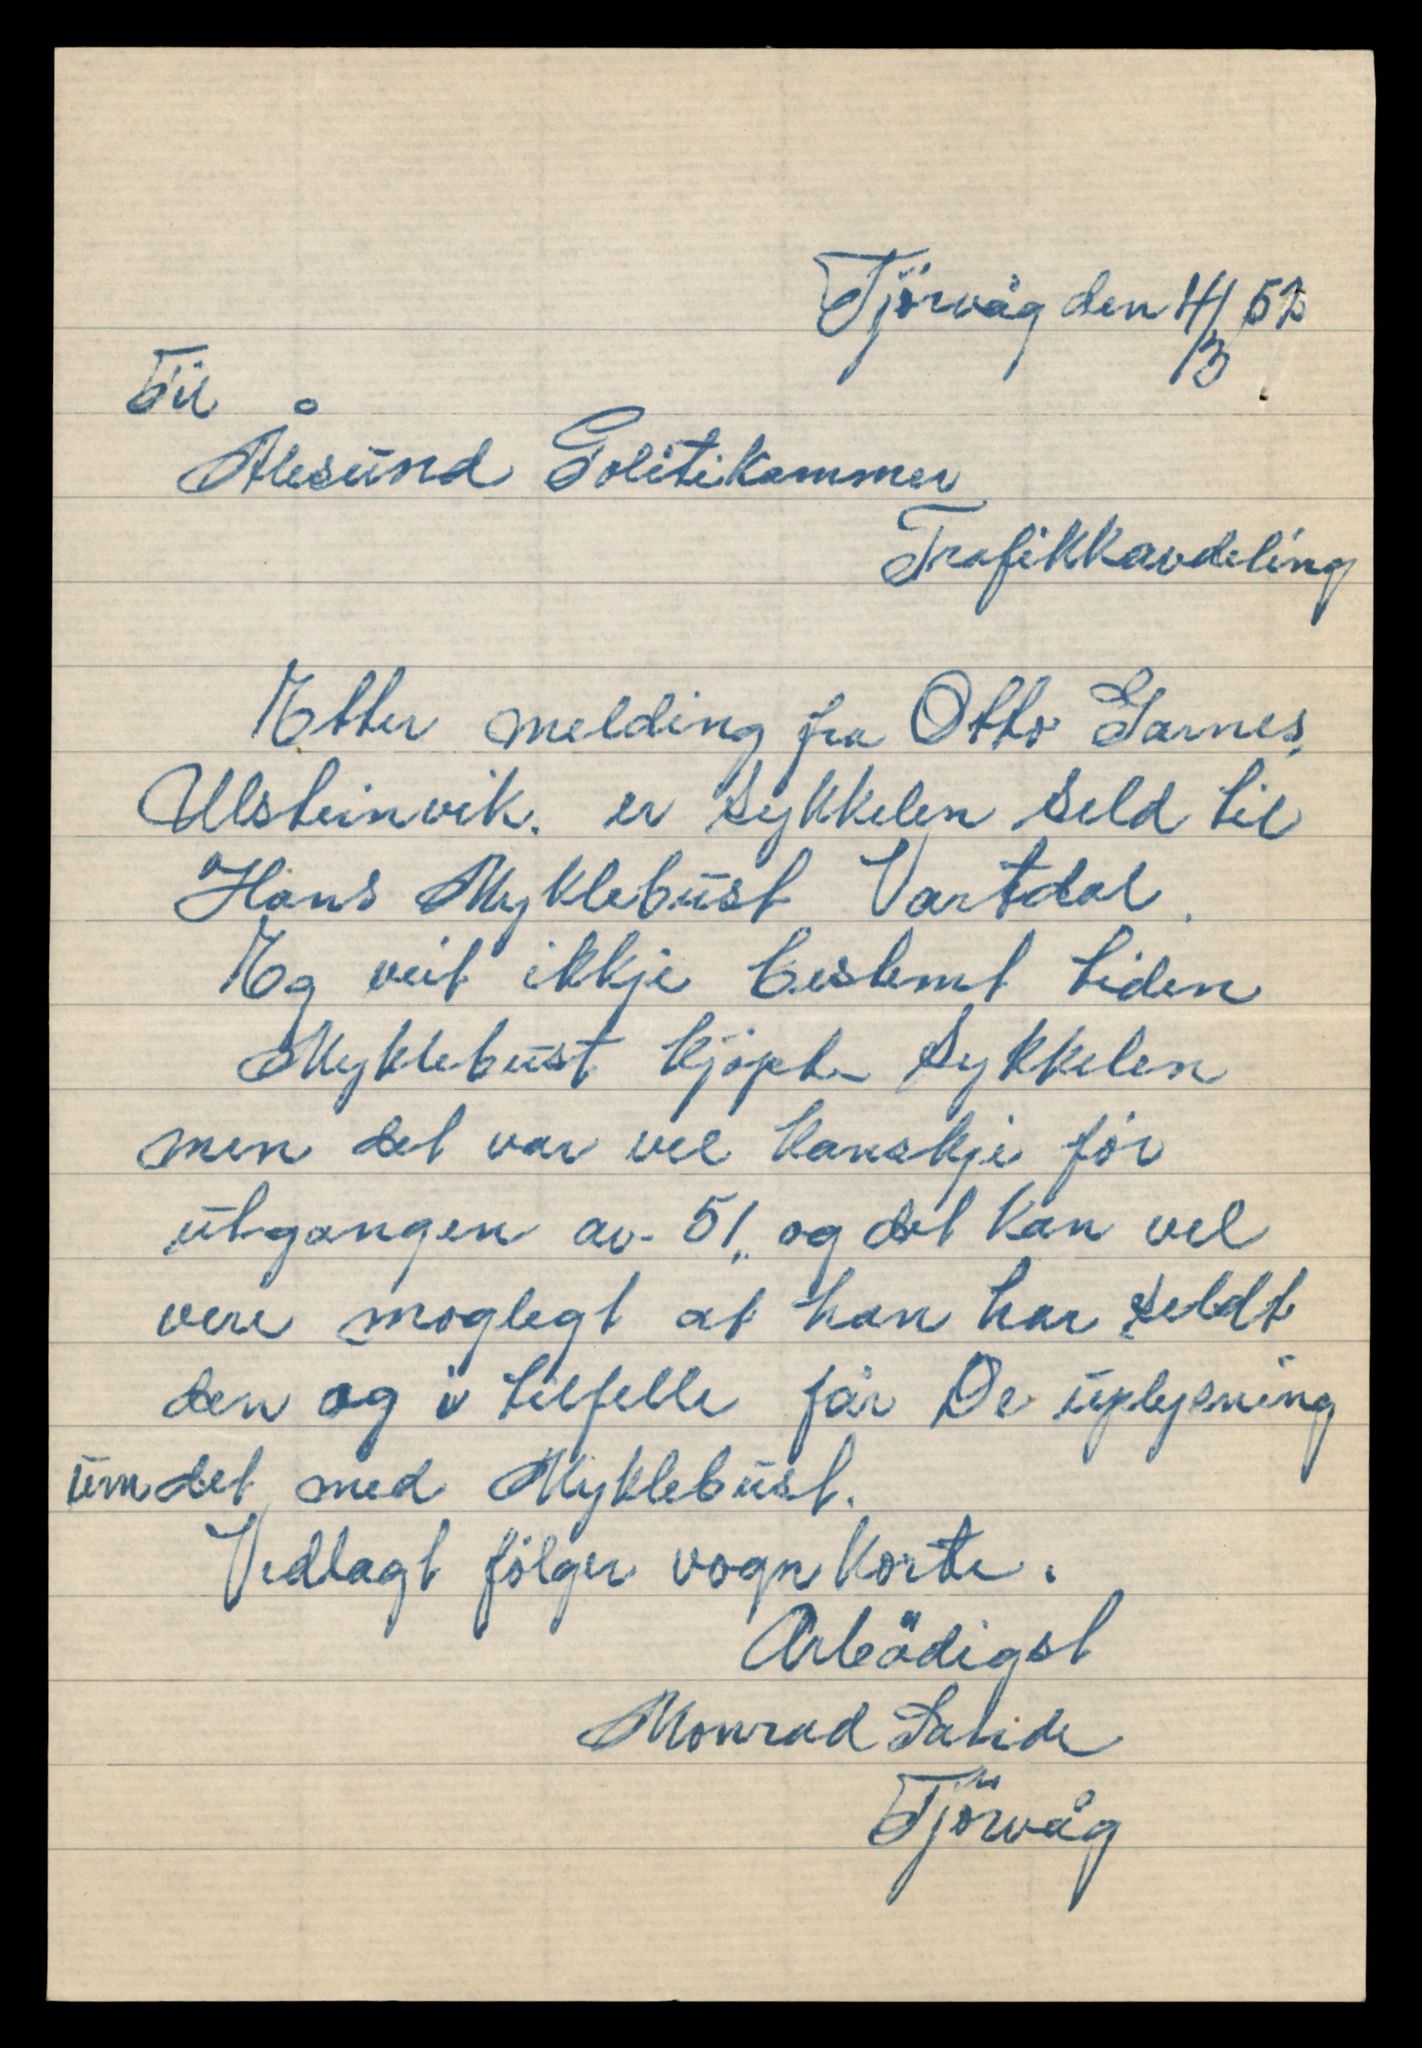 Tjörvåg den 4/3 52
Til
Ålesund Politikammer
Trafikkavdeling
Etter melding fra Otto Garnes,
Ulsteinvik. er sykkelen seld til
Hans Myklebust Vartdal.
Eg veit ikkje bestemt tiden
Myklebust kjöpte sykkelen
men det var vel kanskje för
utgangen av 51,, og det kan vel
vere moglegt at han har seldt
den og i tilfelle får De uplysning
um det med Myklebust.
Vedlagt fölger vognkorte.
Arbödigst
Monrad Sande
Tjörvåg